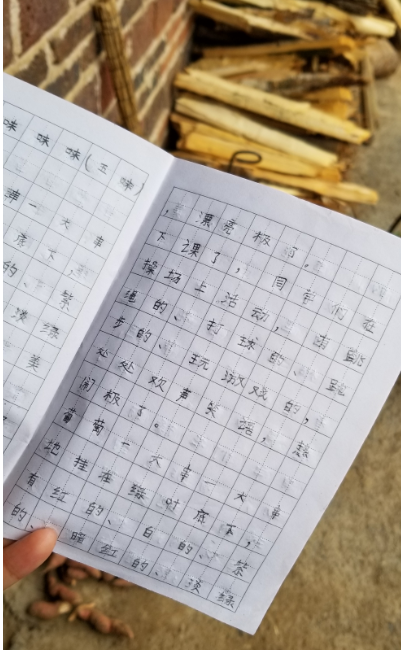 串一大串
底下
的、紫
淡绿
美
,漂亮极了。
下课了,同学们在
操场上活动,有跳
绳的、打球的、跑
步的、玩游戏的,
处处欢声笑语,热
闹极了。
葡萄一大串一大串
地挂在绿叶底下,
有红的、白的、紫
的、暗红的、淡绿